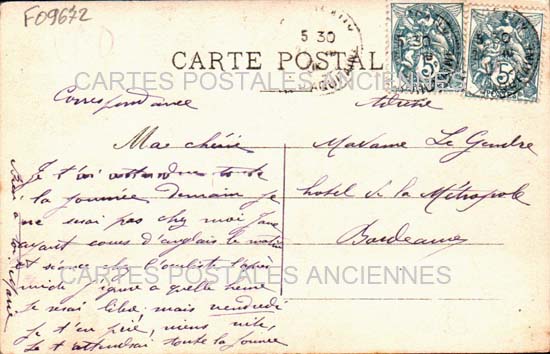 F09672
5 30
CARTE POSTALE
CARTES POSTALES ANCIENNES
Correspondance
Adresse
Ma chérie
Je t'ai attendue toute
la journée demain je
ne serai pas chez moi
ayant cours d'anglais le matin
et séance chez l'oculiste l'après
midi j'ignore à quelle heure
je serai libre, mais vendredi
je t'en prie, viens vite,
je t'attendrai toute la journée
Madame Le Gendre
hotel de la Métropole
Bordeaux
CARTES POSTALES ANCIENNES
Marie